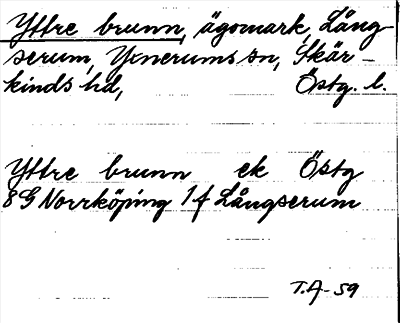 Yttre brunn, ägomark, Lång-
serum, Yxnerums sn, Skär-
kinds hd, Östg. l.
Yttre brunn ek Östg
8G Norrköping 1f Långserum
T.A-59